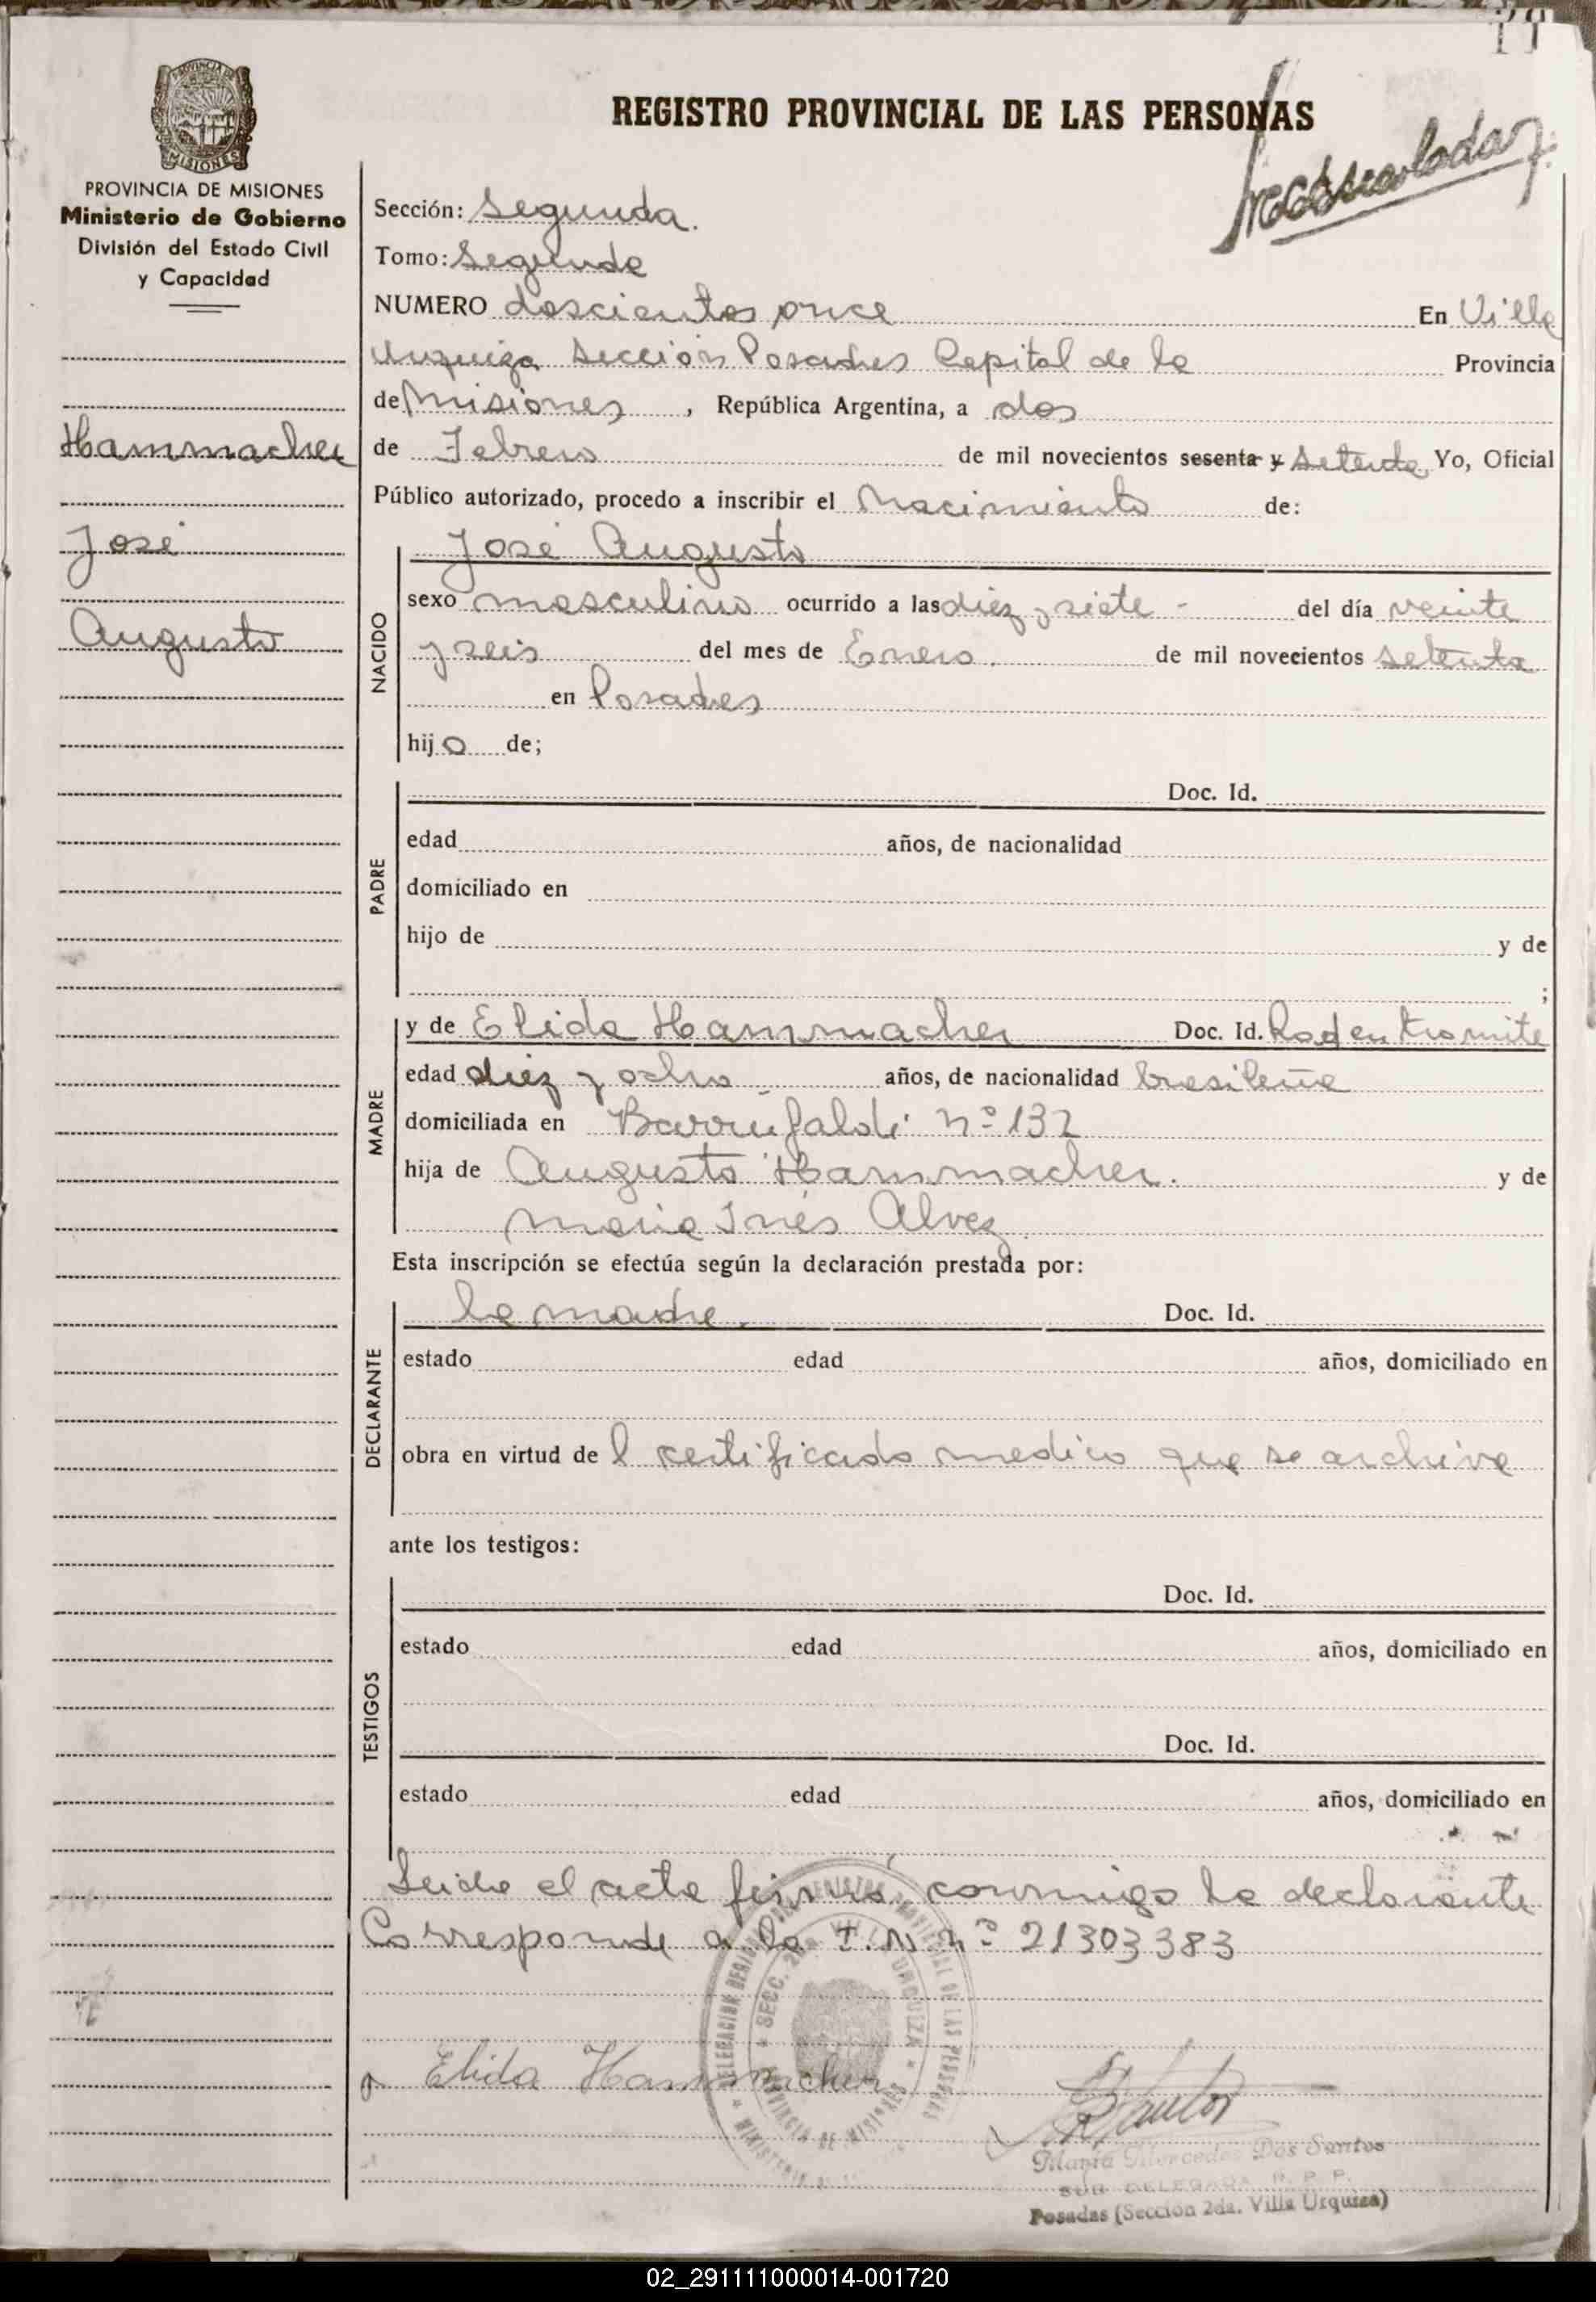 REGISTRO PROVINCIAL DE LAS PERSONAS
MISIONES
PROVINCIA DE MISIONES
Ministerio de Gobierno
División del Estado Civil
y Capacidad
Hammacher
José
Augusto
Sección: Segunda.
Tomo: Segundo
NUMERO doscientos once En Villa
Urquiza Sección Posadas Capital de la Provincia
de Misiones, República Argentina, a dos
de Febrero de mil novecientos sesenta y setenta Yo, Oficial
Público autorizado, procedo a inscribir el Nacimiento de:
NACIDO
José Augusto
sexo masculino ocurrido a las diez y siete - del día veinte
y seis del mes de Enero. de mil novecientos setenta
en Posadas
hijo de;
PADRE
Doc. Id.
edad años, de nacionalidad
domiciliado en
hijo de y de
;
MADRE
y de Elida Hammacher Doc. Id. Rad en tramite
edad diez y ocho años, de nacionalidad brasileña
domiciliada en Barrufaldi nº 132
hija de Augusto Hammacher. y de
Maria Inés Alvez
Esta inscripción se efectúa según la declaración prestada por:
DECLARANTE
la madre. Doc. Id.
estado edad años, domiciliado en
obra en virtud de l certificado medico que se archiva
ante los testigos:
TESTIGOS
Doc. Id.
estado edad años, domiciliado en
Doc. Id.
estado edad años, domiciliado en
Leida el acta firma conmigo la declarante
Corresponde a la I.N nº 21303383
Elida Hammacher
María Mercedes Dos Santos
SUB DELEGADA R. P. P.
Posadas (Sección 2da. Villa Urquiza)
02_291111000014-001720